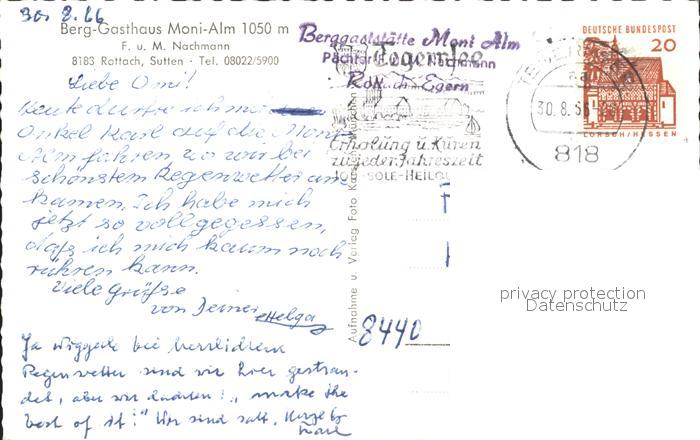 30. 8. 66
Berg-Gasthaus Moni-Alm 1050 m
F. u. M. Nachmann
8183 Rottach, Sutten - Tel. 08022/5900
Berggaststätte Moni Alm
Pächter F. u. M. Nachmann
Rottach-Egern
Tegernsee
Erholung u. Kuren
zu jeder Jahreszeit
JOD-SOLE-HEILQU
30.8.66
818
DEUTSCHE BUNDESPOST
20
LORSCH/HESSEN
Liebe Omi!
Heute durfte ich mit
Onkel Karl auf die Moni-
Alm fahren, wo wir bei
schönstem Regenwetter an-
kamen. Ich habe mich
jetzt so vollgegessen,
daß ich mich kaum noch
rühren kann.
Viele Grüße
von Deiner Helga
Ja bei herrlichem
Regenwetter sind wir hier gestran-
det, aber wir dachten: "make the
best of it!" Wir sind satt.
Aufnahme u. Verlag Foto
8440
privacy protection
Datenschutz